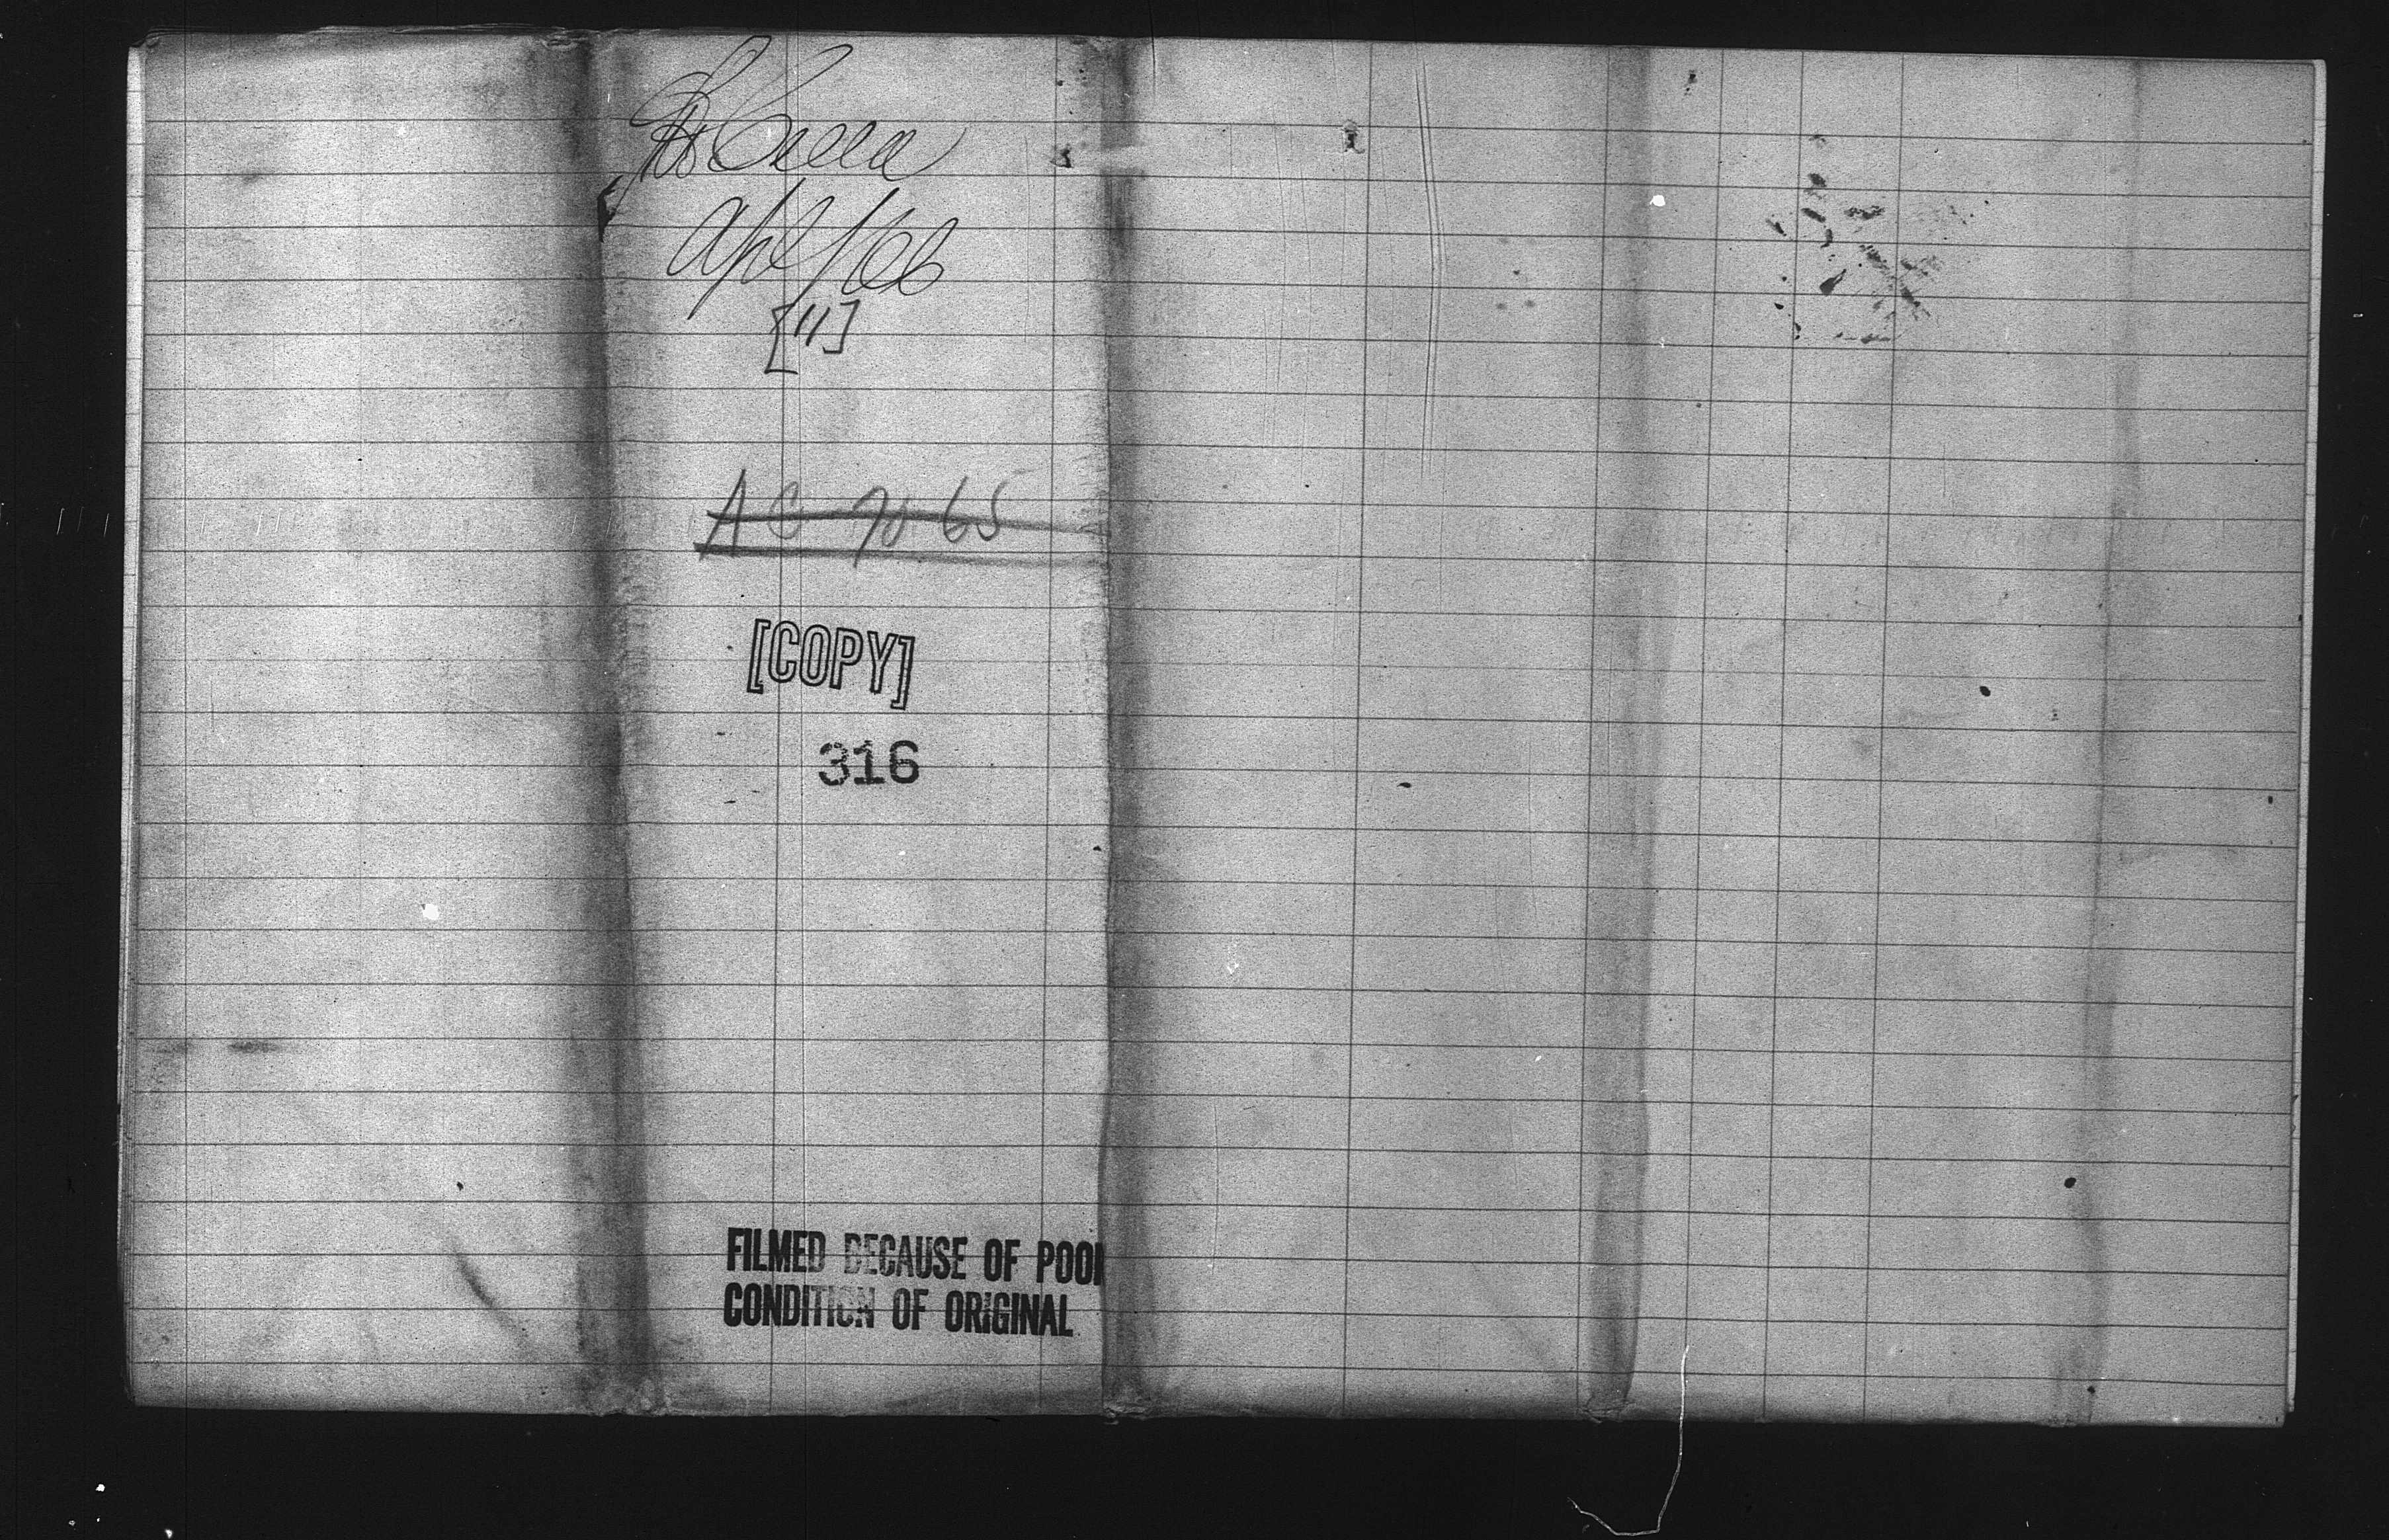 Apl/66
["]
AC 90 65
[COPY]
316
FILMED BECAUSE OF POOR
CONDITION OF ORIGINAL